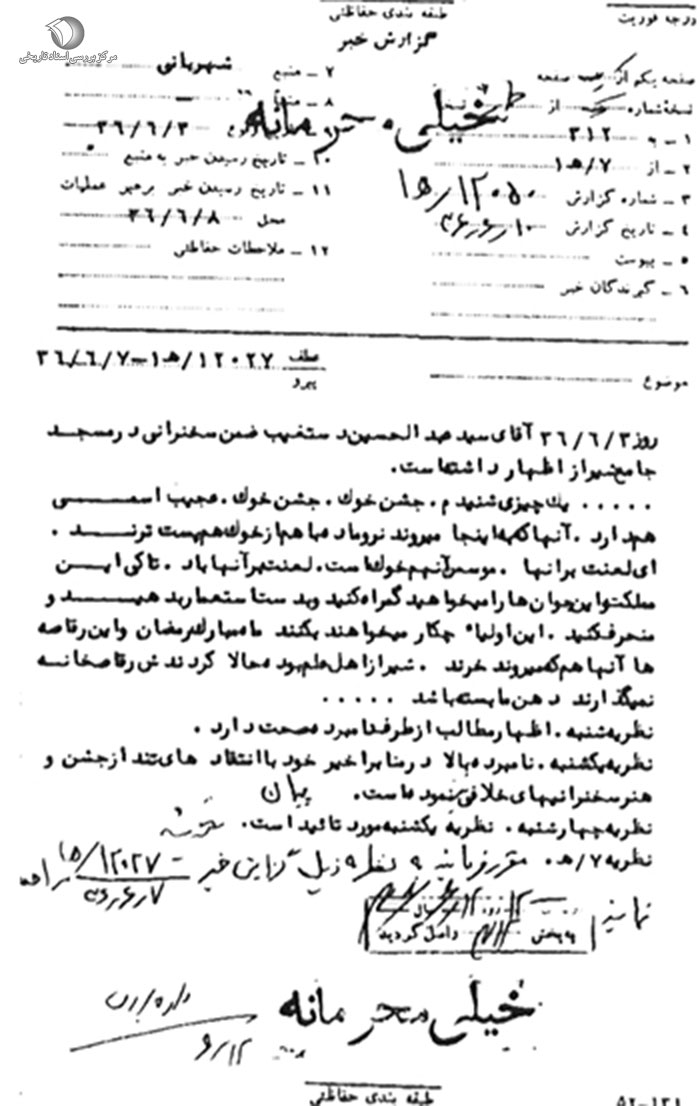 مرکز بررسی اسناد تاریخی
طبقه بندی حفاظتی
درجه فوریت
گزارش خبر
صفحه یکم از صفحه
نسخهٔ شماره از نسخه
۱ ـ به ۳۱۲
۲ ـ از ۷/ه۱
۳ ـ شماره گزارش ۱۲۰۵۰/ه۱
۴ ـ تاریخ گزارش ۳۶/۶/۱۰
۵ ـ پیوست
۶ ـ گیرندگان خبر
۷ ـ منبع شهربانی
۸ ـ منشأ
۹ ـ وقوع ۳۶/۶/۳
۱۰ ـ تاریخ رسیدن خبر به منبع
۱۱ ـ تاریخ رسیدن خبر برهبر عملیات
محل ۳۶/۶/۸
۱۲ ـ ملاحظات حفاظتی
خیلی محرمانه
موضوع
عطف
پیرو
۱۲۰۲۷/ه۱-۳۶/۶/۷
روز ۳۶/۶/۳ آقای سید عبدالحسین دستغیب ضمن سخنرانی در مسجد
جامع شیراز اظهار داشته است.
..... یك چیزی شنیدم. جشن خوك. جشن خوك. عجیب اسمی
هم دارد. آنها که به اینجا میروند نر و ماده ها هم از خوك هم پست ترند.
ای لعنت بر آنها. موسس آنهم خوك است. لعنت بر آنها باد. تا کی این
مملکت و این جوان ها را میخواهید گمراه کنید و بدست استعمار بدهید و
منحرف کنید. این اولیاء چکار میخواهند بکنند ماه مبارك رمضان و این رقاصه
ها آنها هم که میروند خرند. شیراز اهل علم بود حالا کردندش رقاصخانه
نمیگذارند دهن ما بسته باشد .....
نظریه شنبه. اظهار مطالب از طرف نامبرده صحت دارد.
نظریه یکشنبه. نامبرده بالا در منابر اخیر خود با انتقاد های تند از جشن و
هنر سخنرانیهای خلافی نموده است. بیان
نظریه چهارشنبه. نظریه یکشنبه مورد تائید است.
نظریه ۷/ه. مقرر فرمایند نظریه ذیل گزارش خبر ۱۲۰۲۷/ه۱ -
۳۶/۶/۷
نمایند
به بخش ۳۱۲ واصل گردید
خیلی محرمانه
۶/۱۲
طبقه بندی حفاظتی